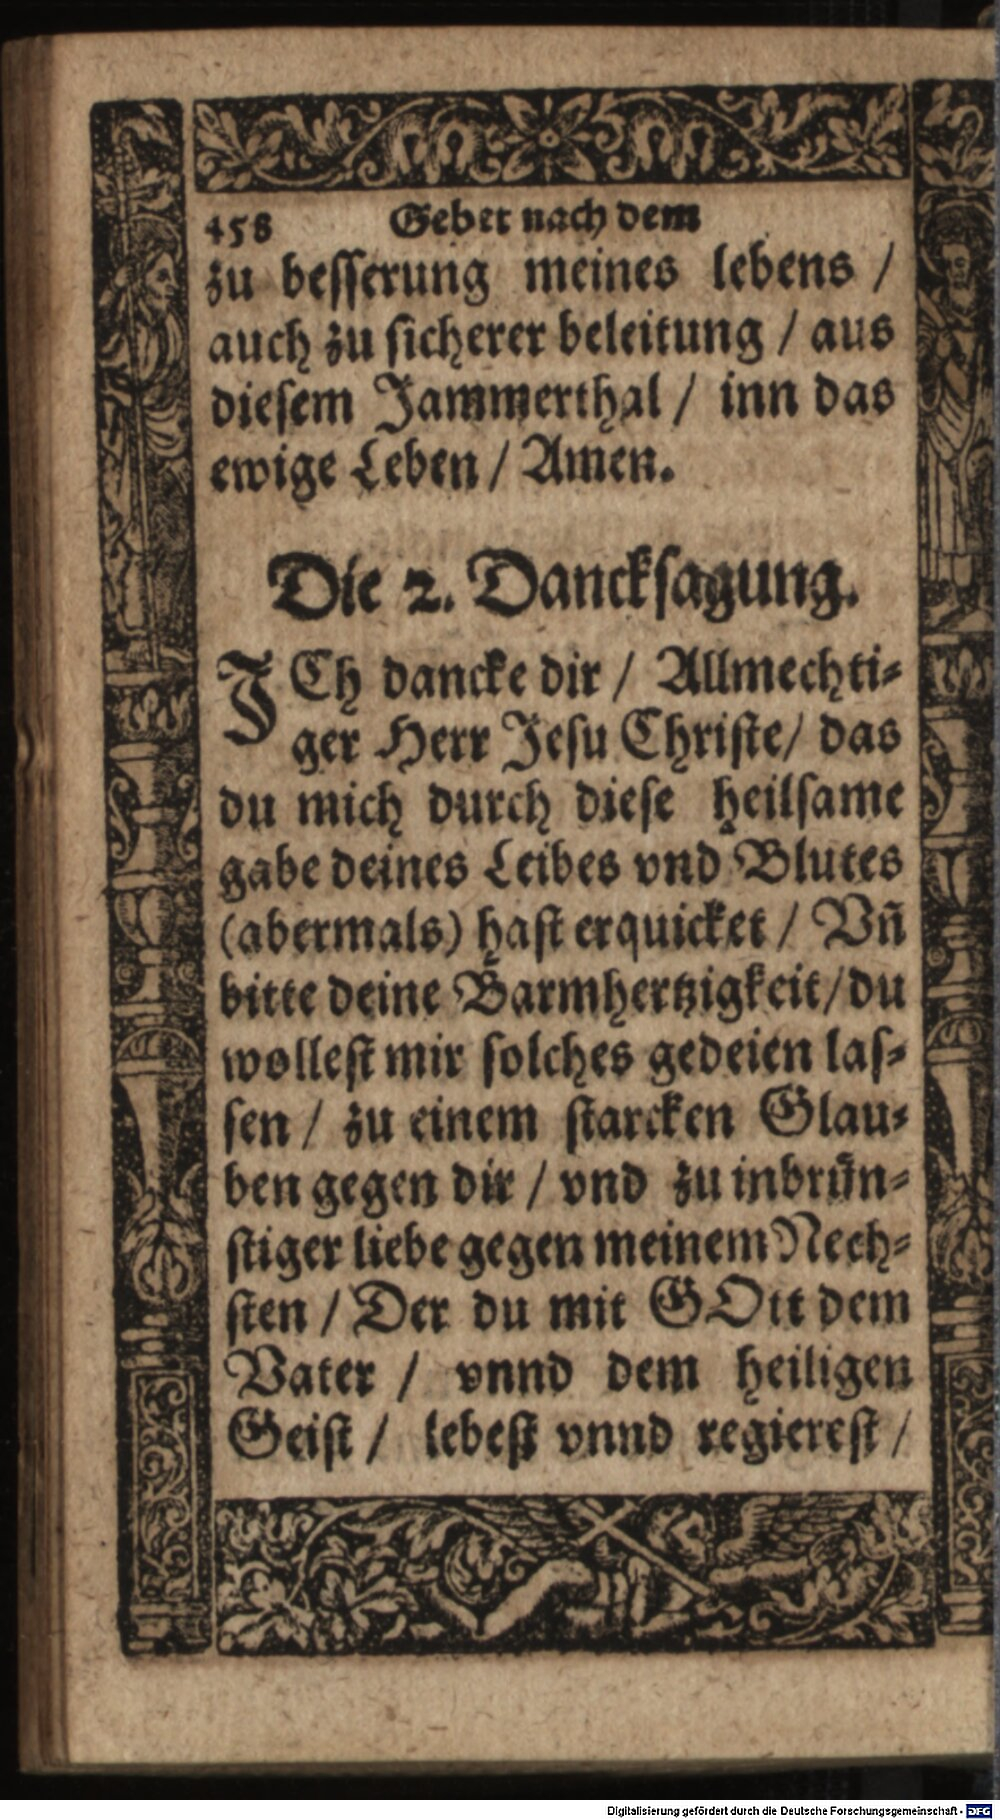 458 Gebet nach dem
zu besserung meines lebens /
auch zu sicherer beleitung / aus
diesem Jammerthal / inn das
ewige Leben / Amen.
Die 2. Dancksagung.
ICh dancke dir / Allmechti-
ger Herr Jesu Christe / das
du mich durch diese heilsame
gabe deines Leibes vnd Blutes
(abermals) hast erquicket / Vñ
bitte deine Barmhertzigkeit / du
wollest mir solches gedeien las-
sen / zu einem starcken Glau-
ben gegen dir / vnd zu inbrün-
stiger liebe gegen meinem Nech-
sten / Der du mit GOtt dem
Vater / vnnd dem heiligen
Geist / lebest vnnd regierest /
Digitalisierung gefördert durch die Deutsche Forschungsgemeinschaft - DFG